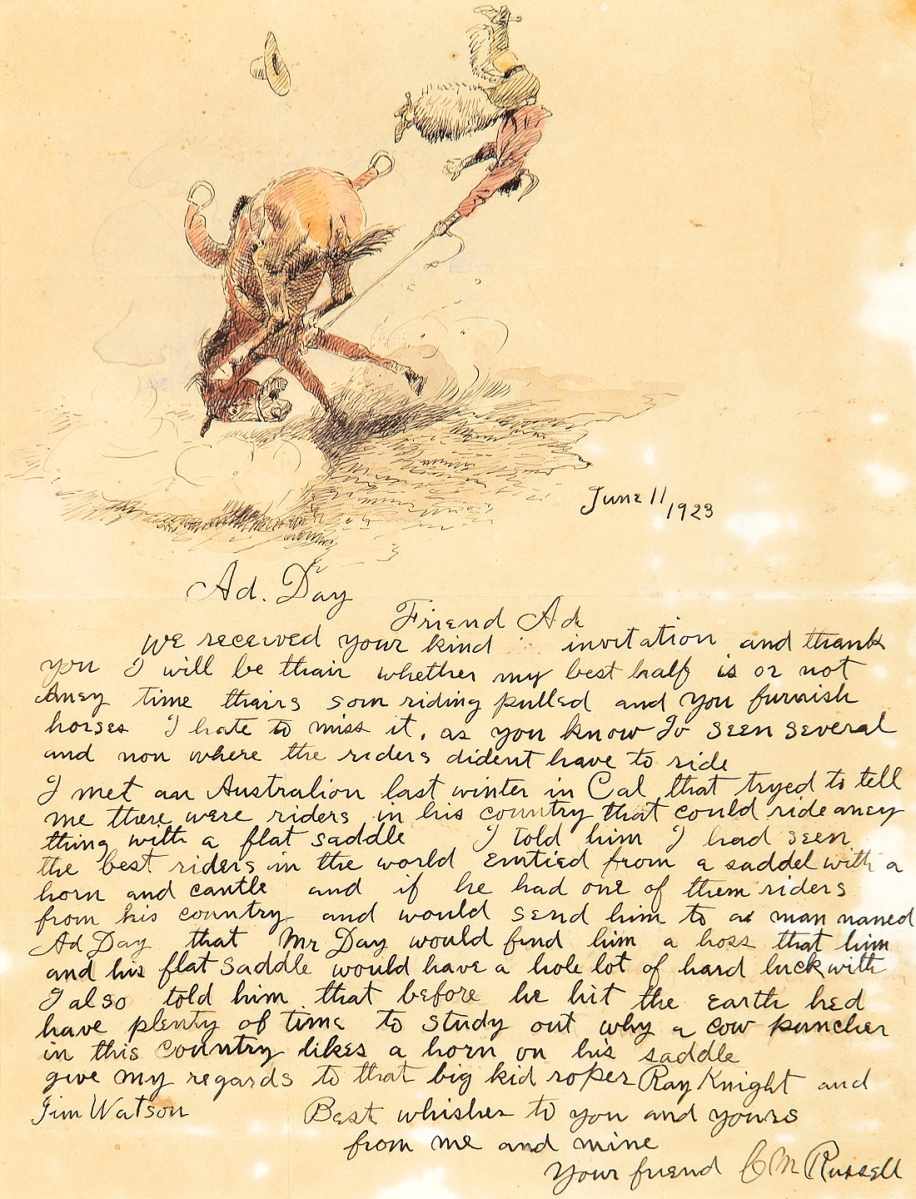 June 11/1923
Ad. Day
Friend Ad
We received your kind invitation and thank
you I will be thair whether my best half is or not
aney time thairs som riding pulled and you furnish
horses I hate to miss it. as you know Iv seen several
and non where the riders dident have to ride
I met an Australion last winter in Cal that tryed to tell
me there were riders in his country that could ride aney
thing with a flat saddle I told him I had seen
the best riders in the world emtied from a saddel with a
horn and cantle and if he had one of them riders
from his country and would send him to a man named
Ad Day that Mr Day would find him a hoss that him
and his flat saddle would have a hole lot of hard luck with
I also told him that before he hit the earth hed
have plenty of time to study out why a cow puncher
in this country likes a horn on his saddle
give my regards to that big kid roper Ray Knight and
Jim Watson Best whishes to you and yours
from me and mine
Your friend C M Russell